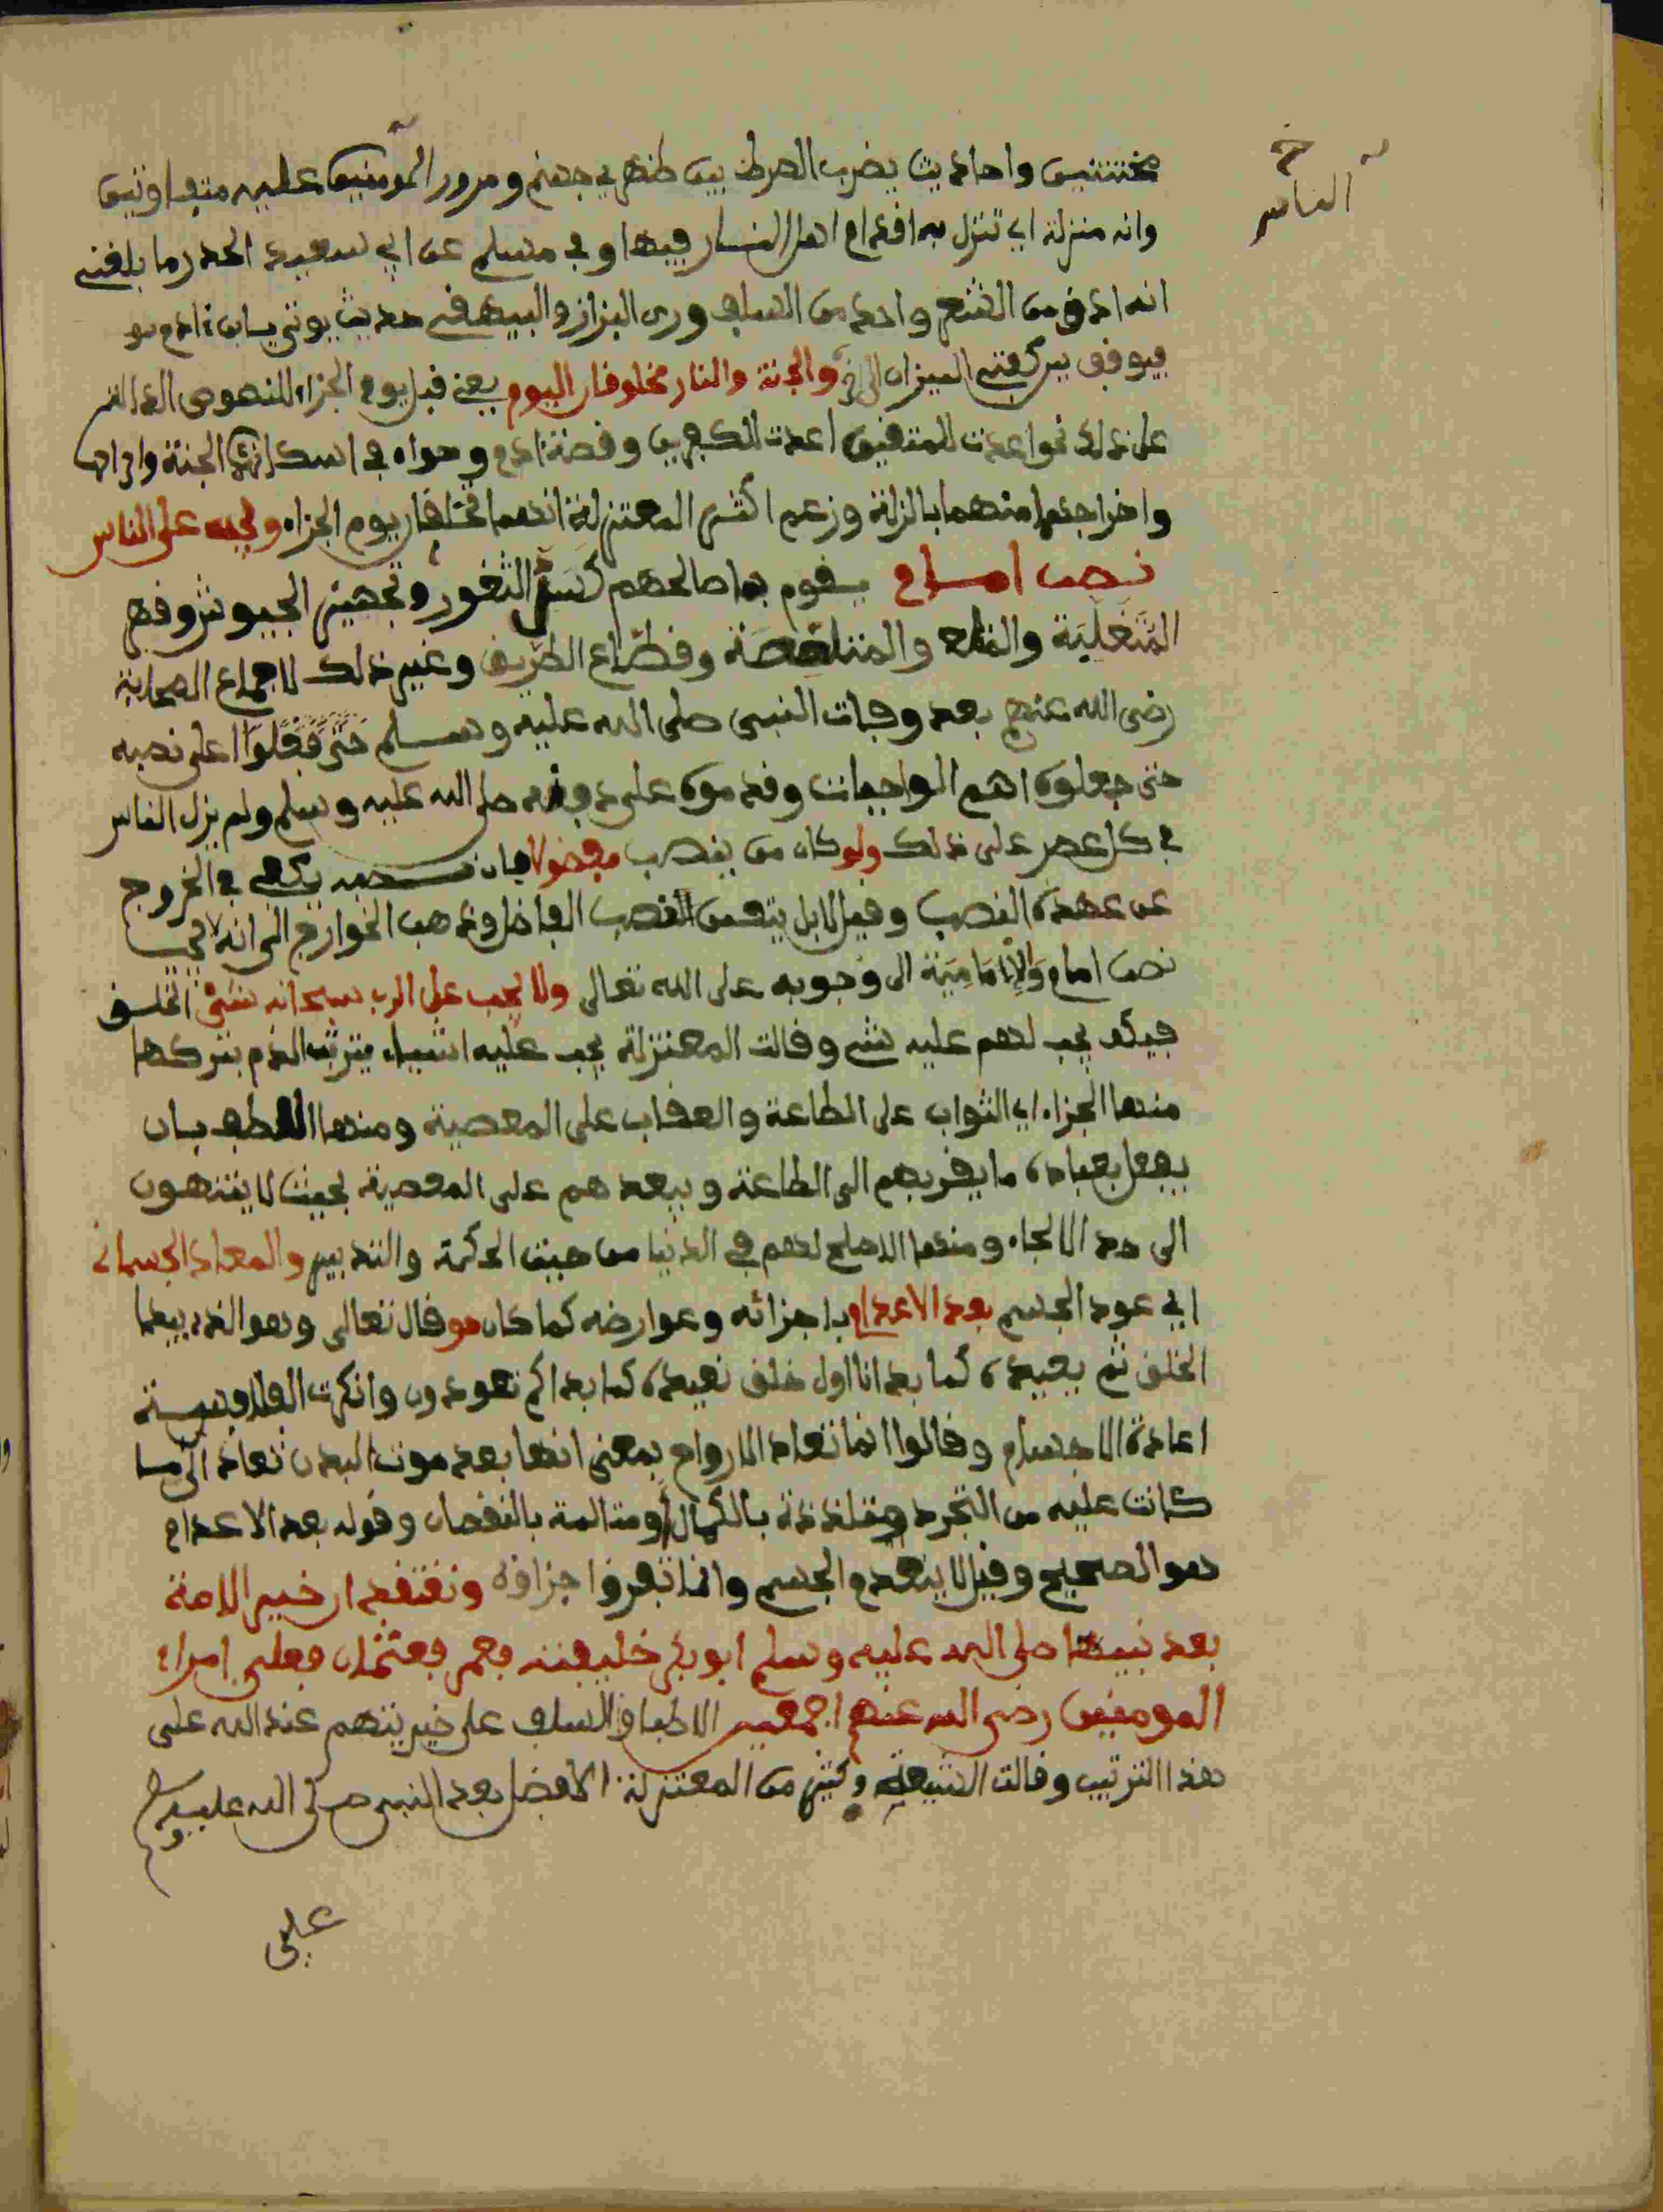 خ
الناس
مختتنين واحاديث يضرب الصرط بين ظهري جهنم ومرور المومنين عليه متفاوتين
وانه منزلة اي تنزل به اقدام اهل النار فيها وفي مسلم عن ابي سعيد الخدر ما بلغني
انه ادق من الشعر واحد من السيف وروى البزاز والبيهقي حديث يوتى بابن ادم
فيوقف بين كفتي الميزان الى اخر والجنة والنار مخلوقان اليوم يعني قبل يوم الجزاء للنصوص الدالة
على ذلك نحو اعدت للمتقين اعدت للكفرين وقصة ادم وحواء في اسكانهما الجنة
واخراجهما منهما بالزلة وزعم اكثر المعتزلة انهما يخلقان يوم الجزاء ويجب على الناس
نصب امام يقوم بمصالحهم كسد الثغور وتجهيز الجيوش وقهر
المتغلبة والمتلصصة وقطاع الطريق وغير ذلك لاجماع الصحابة
رضي الله عنهم بعد وفات النبي صلى الله عليه وسلم على نصبه
حتى جعلوه اهم الواجبات وقدموه على دفنه صلى الله عليه وسلم ولم يزل الناس
في كل عصر على ذلك ولو كان من ينصب مفضولا فان نصبه يكفي في الخروج
عن عهدة النصب وقيل لا بل يتعين النصب الفاضل وذهب الخوارج الى انه لا يجب
نصب امام والامامية الى وجوبه على الله تعالى ولا يجب على الرب سبحانه شيء الخلق
فيكف يجب لهم عليه شيء وقالت المعتزلة يجب عليه اشياء يترتب الذم بتركها
منها الجزاء اي الثواب على الطاعة والعقاب على المعصية ومنها اللطف بان
يفعل بعباده ما يقربهم الى الطاعة ويبعدهم على المعصية بحيث لا ينتهون
الى حد الالجاء ومنها الاصلح لهم في الدنيا من حيث الحكمة والتدبير والمعاد الجسماني
اي عود الجسم بعد الاعدام باجزائه وعوارضه كما كان هو قال تعالى وهو الذي يبدا
الخلق ثم يعيده كما بدانا اول خلق نعيده كما بداكم تعودون وانكرت الفلاوسفة
اعادة الاجسام وقالوا انما تعاد الارواح بمعنى انها بعد موت البدن تعاد الى ما
كانت عليه من التجرد متلذذة بالكمال او متالمة بالنقصان وقوله بعد الاعدام
هو الصحيح وقيل لا ينعدم الجسم وانما تفرق اجزاؤه ونعتقد ان خير الامة
بعد نبيها صلى الله عليه وسلم ابو بكر خليفته فعمر فعثمان فعلي امراء
المومنين رضي الله عنهم اجمعين لاطباق السلف على خيريتهم عند الله على
هذا الترتيب وقالت الشيعة وكثير من المعتزلة الافضل بعد النبي صلى الله عليه وسلم
علي